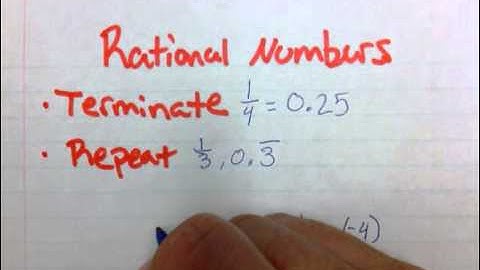 Rational Numbers
• Terminate 1/4 = 0.25
• Repeat 1/3, 0.3̅
-4)